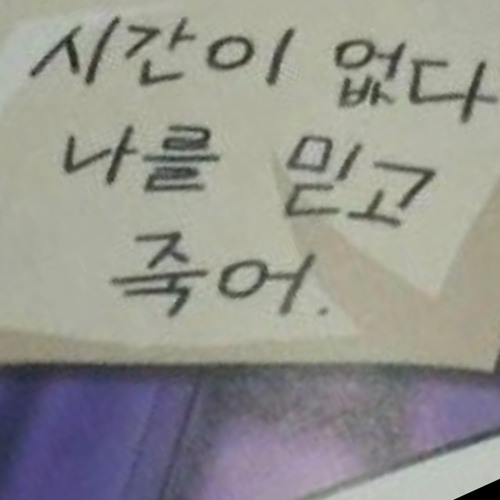 시간이 없다
나를 믿고
죽어.